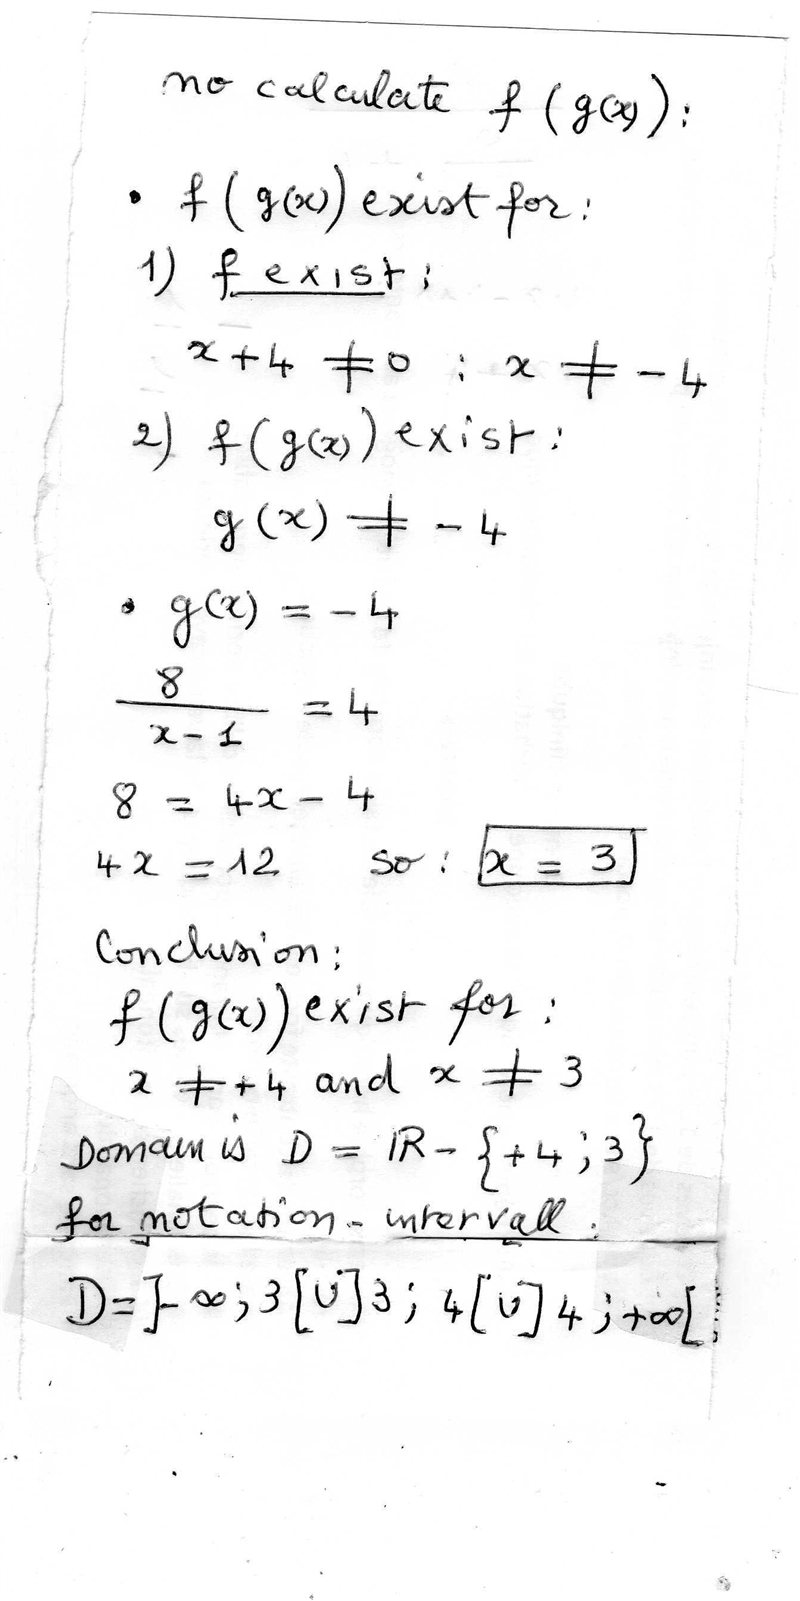 no calculate f(g(x)):
• f(g(x)) exist for:
1) f exist:
x+4 ≠ 0 : x ≠ -4
2) f(g(x)) exist:
g(x) ≠ -4
• g(x) = -4
8/(x-1) = 4
8 = 4x - 4
4x = 12 so: x = 3
Conclusion:
f(g(x)) exist for:
x ≠ +4 and x ≠ 3
Domain is D = IR - {+4;3}
for notation-intervall:
D=]-∞;3[U]3;4[U]4;+∞[